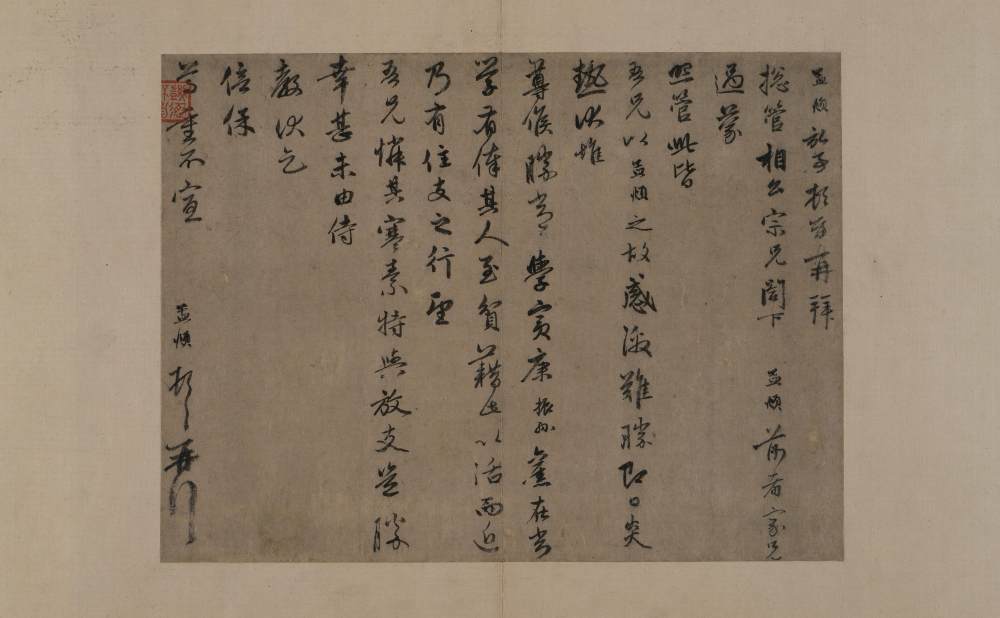 孟頫記事頓首再拜
揔管相公宗兄閣下 孟頫前者家兄
過蒙
照管此皆
吾兄以孟頫之故感激難勝即日炎
熱伏惟
尊候勝常學賓康振孫舊在常
學有俸其人至貧藉此以活而近
乃有住支之行望
吾兄憐其寒素特與放支豈勝
幸甚未由侍
教伏乞
倍保
尊重不宣 孟頫頓首再拜